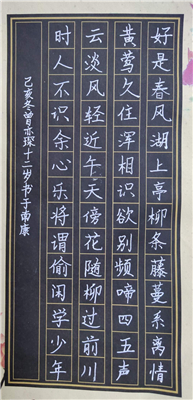 好是春风湖上亭柳条藤蔓系离情
黄莺久住浑相识欲别频啼四五声
云淡风轻近午天傍花随柳过前川
时人不识余心乐将谓偷闲学少年
己亥冬曾亦琛十二岁书于南康